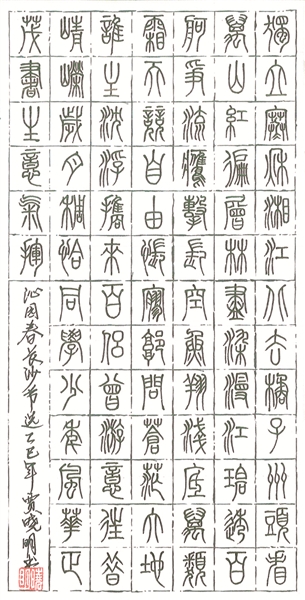 獨立寒秋湘江北去橘子州頭看
萬山紅徧層林盡染漫江碧透百
舸爭流鷹擊長空魚翔淺底萬類
霜天競自由悵寥廓問蒼茫大地
誰主沈浮攜來百侶曾游憶往昔
崢嶸歲月稠恰同學少年風華正
茂書生意氣揮
沁园春長沙节选乙巳年贾晓明书